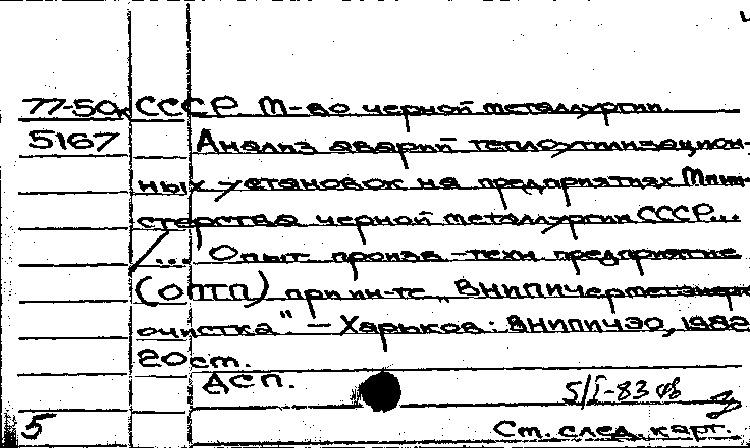 77-50к СССР М-во черной металлургии.
5167 Анализ аварий теплоутилизацион-
ных установок на предприятиях Мини-
стерства черной металлургии СССР...
/... Опыт. произв.-техн. предприятие
(ОПТП) при ин-те „ВНИПИчерметэнерго
очистка". — Харьков: ВНИПИЧЭО, 1982
20 ст.
ДСП.
5/I-83
5 Ст. след. карт.